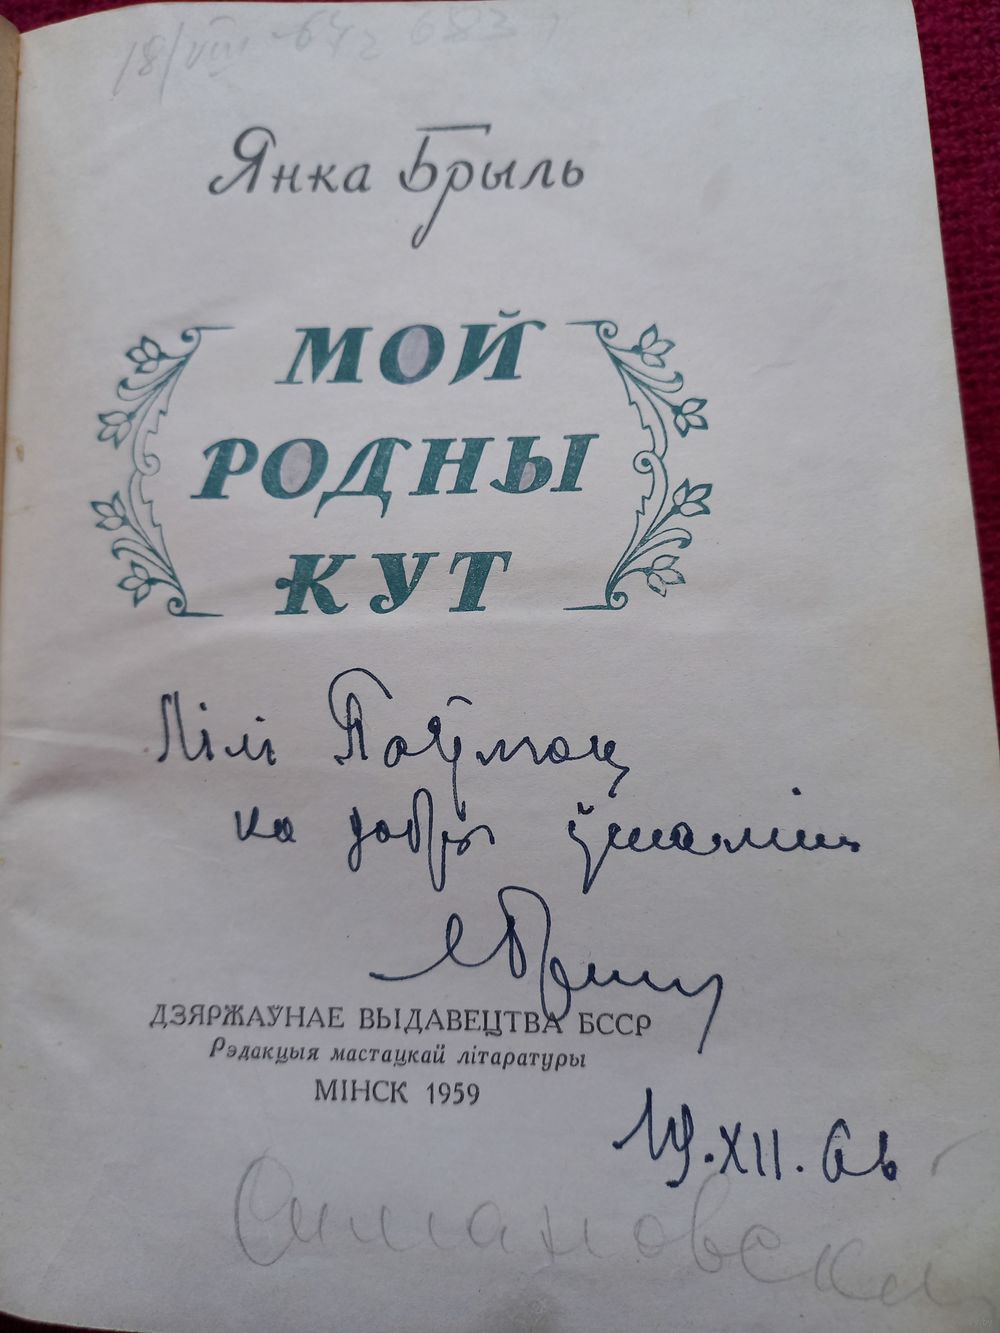 18/VIII 67г 683
Янка Брыль
МОЙ
РОДНЫ
КУТ
Лілі
на добры ўспамін
Я Брыль
ДЗЯРЖАЎНАЕ ВЫДАВЕЦТВА БССР
Рэдакцыя мастацкай літаратуры
МІНСК 1959
19.XII.66